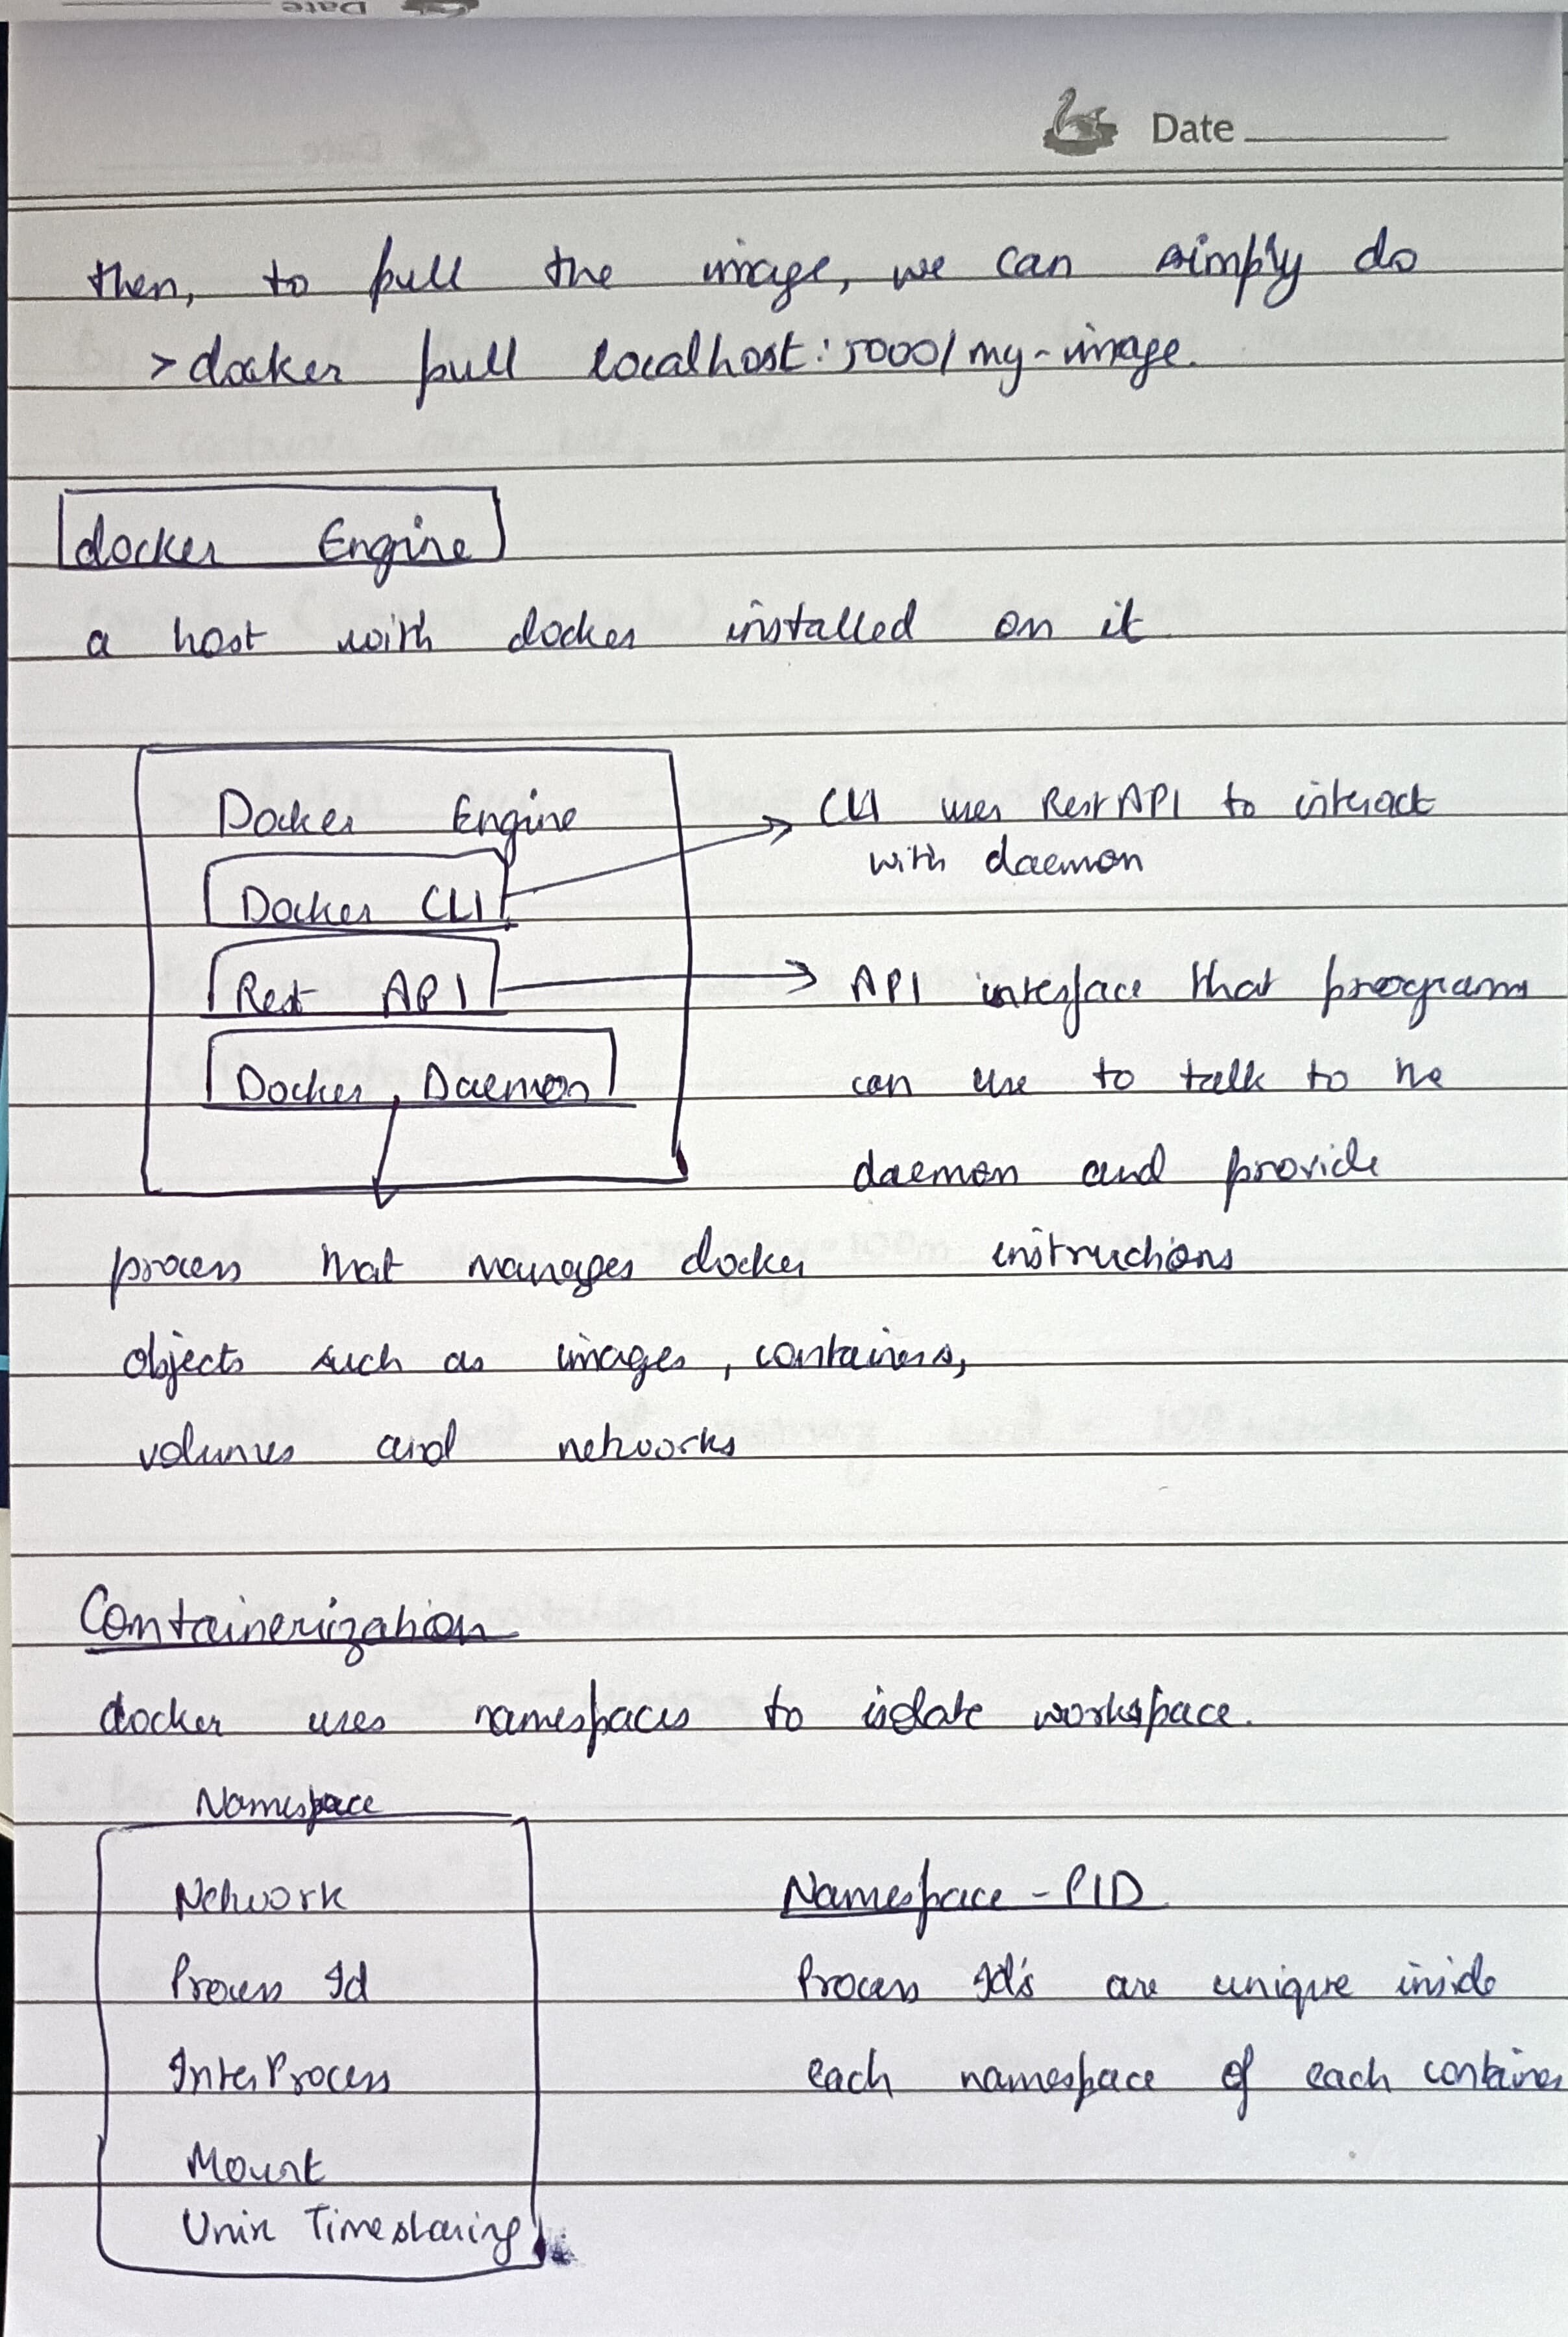 Date
Date
then, to pull the image, we can simply do
> docker pull localhost:5000/my-image.
docker Engine
a host with docker installed on it
Docker Engine
Docker CLI
Rest API
Docker Daemon
CLI uses Rest API to interact
with daemon
API interface that programs
can use to talk to the
daemon and provide
instructions
process that manages docker
objects such as images, containers,
volumes and networks
Containerization
docker uses namespaces to isolate workspace.
Namespace
Network
Process Id
InterProcess
Mount
Unix Timesharing
Namespace - PID
Process Id's are unique inside
each namespace of each container